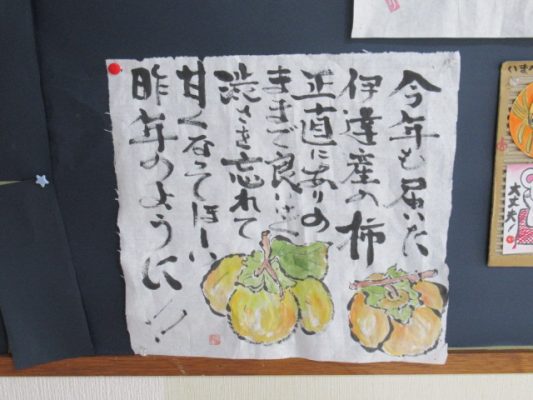 今年も届いた
伊達産の柿
正直にありの
ままで良いさ
渋さき忘れて
甘くなってほしい
昨年のように!!
大丈夫!